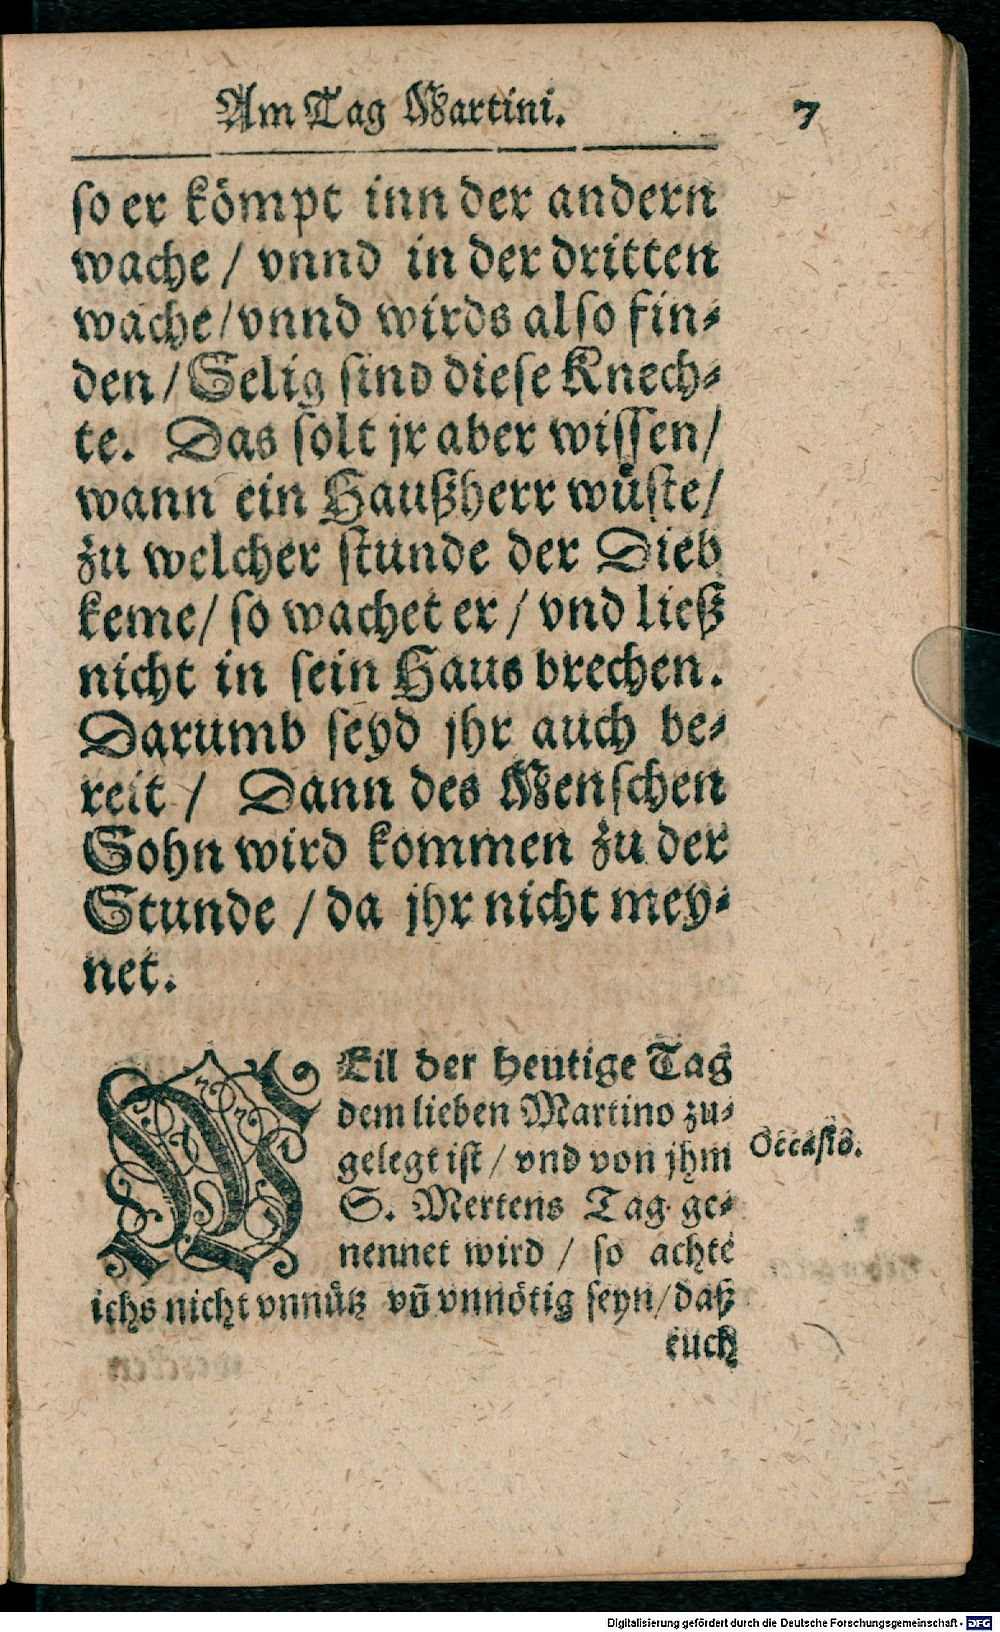 Am Tag Martini. 7
so er kömpt inn der andern
wache / vnnd in der dritten
wache / vnnd wirds also fin-
den / Selig sind diese Knech-
te. Das solt jr aber wissen /
wann ein Haußherr wůste /
zu welcher stunde der Dieb
keme / so wachet er / vnd ließ
nicht in sein Haus brechen.
Darumb seyd jhr auch be-
reit / Dann des Menschen
Sohn wird kommen zu der
Stunde / da jhr nicht mey-
net.
WEil der heutige Tag
dem lieben Martino zu-
gelegt ist / vnd von jhm
Occasio.
S. Mertens Tag ge-
nennet wird / so achte
ichs nicht vnnůtz vñ vnnötig seyn / daß
euch
Digitalisierung gefördert durch die Deutsche Forschungsgemeinschaft - DFG